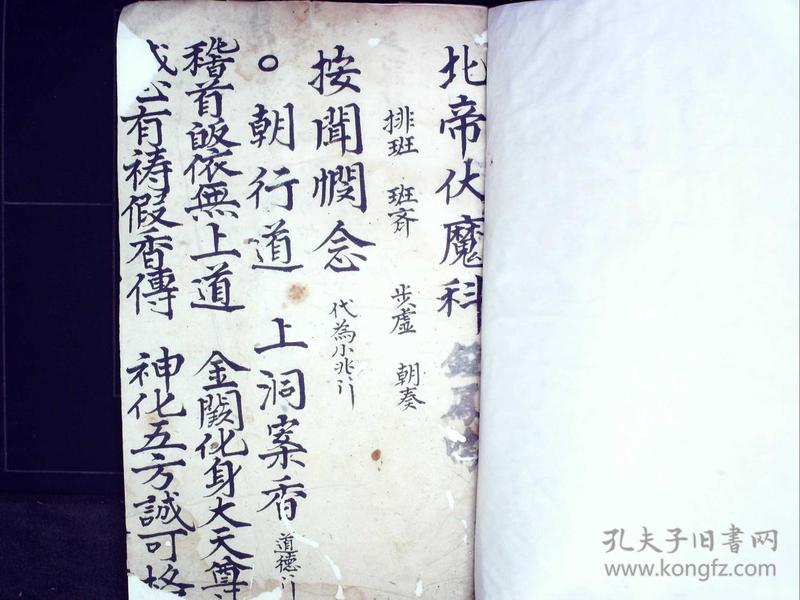 北帝伏魔科
排班 班齐 步虚 朝奏
按聞憫念 代為小兆
○朝行道 上洞案香 道德
稽首皈依無上道 金闕化身大天尊
有祷假香傳 神化五方誠可格
孔夫子旧书网
www.kongfz.com